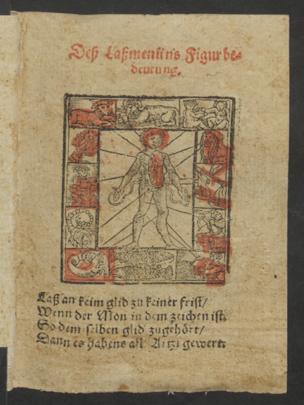 Deß Laßmenlins Figur be-
deutung.
Laß an keim glid zu keiner frist/
Wenn der Mon in dem zeichen ist.
So dem selben glid zugehört/
Dann es habens all Artzt gewert.